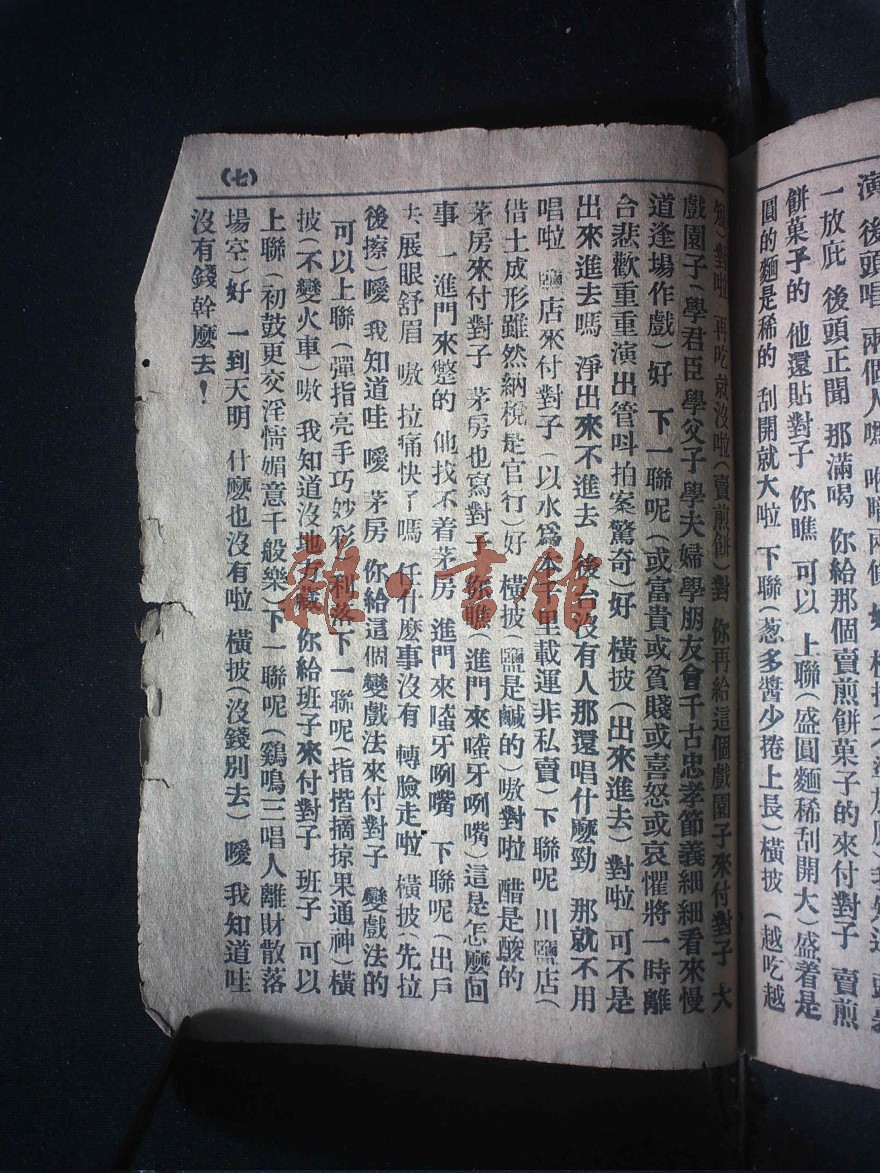 演 後頭唱 兩個人嘿
一放庇 後頭正聞 那滿喝 你給那個賣煎餅菓子的來付對子 賣煎
餅菓子的 他還貼對子 你瞧 可以 上聯(盛圓麵稀刮開大)盛着是
圓的麵是稀的 刮開就大啦 下聯(葱多醬少捲上長)橫披 (越吃越
(七)
短)對啦 再吃就沒啦(賣煎餅)對 你再給這個戲園子來付對子 大
戲園子(學君臣 學父子 學夫婦 學朋友會千古忠孝節義細細看來慢
道逢場作戲)好 下一聯呢(或富貴或貧賤或喜怒或哀懼將一時離
合悲歡重重演出管呌拍案驚奇)好 橫披(出來進去)對啦 可不是
出來進去嗎 淨出來不進去 後台沒有人那還唱什麽勁 那就不用
唱啦 鹽店來付對子(以水爲本 里載運非私賣)下聯呢 川鹽店(
借土成形雖然納稅是官行)好 橫披(鹽是鹹的)嗷對啦 醋是酸的
茅房來付對子 茅房也寫對子 你瞧(進門來嗞牙咧嘴)這是怎麽回
事 一進門來蹩的 他找不着茅房 進門來嗞牙咧嘴 下聯呢(出戶
去展眼舒眉 嗷 拉痛快了嗎 任什麽事沒有 轉臉走啦 橫披(先拉
後擦)噯 我知道哇 噯 茅房 你給這個變戲法來付對子 變戲法的
可以上聯(彈指亮手巧妙彩)利落下一聯呢(指揩摘掠果通神)橫
披(不變火車)嗷 我知道沒地方藏 你給班子來付對子 班子 可以
上聯(初鼓更交淫情媚意千般樂)下一聯呢(鷄鳴三唱人離財散落
場空)好 一到天明 什麽也沒有啦 橫披(沒錢別去)噯 我知道哇
沒有錢幹麽去!
雜·書館